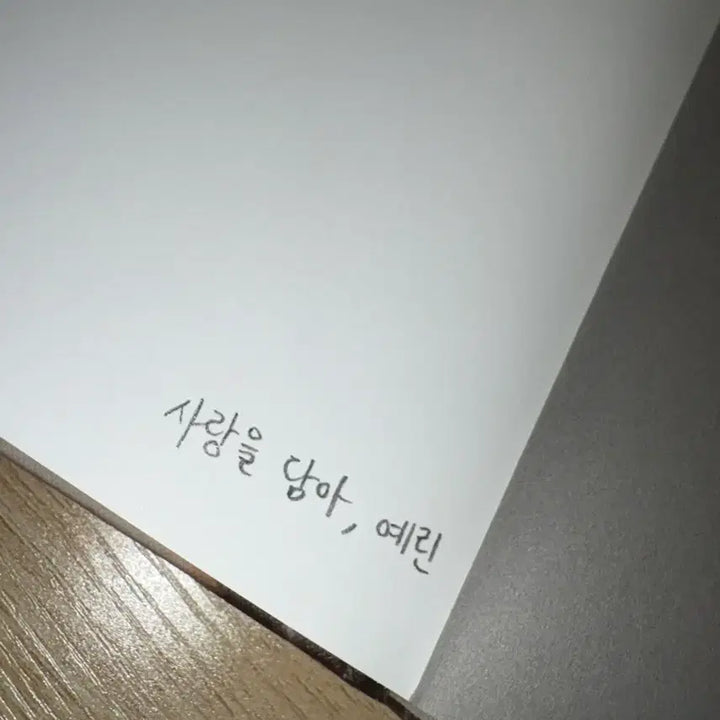 사랑을 담아, 예린